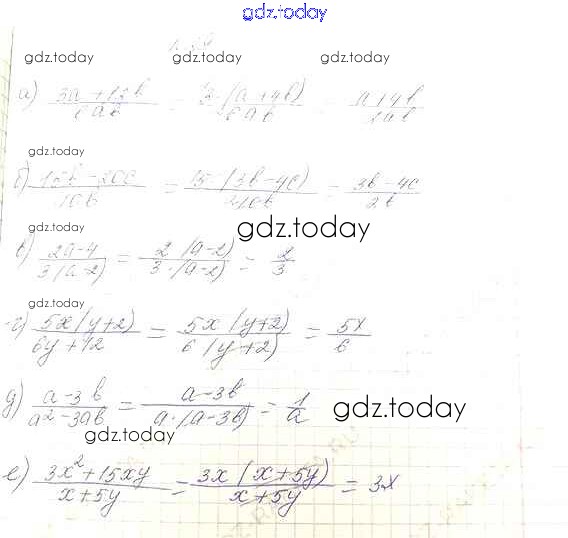 gdz.today
gdz.today gdz.today gdz.today
а) (3a + 12b)/(6ab) = (3·(a+4b))/(6ab) = (a+4b)/(2ab)
gdz.today
б) (15b − 20c)/(10b) = (5·(3b−4c))/(10b) = (3b−4c)/(2b)
gdz.today
gdz.today
в) (2a−4)/(3(a−2)) = (2(a−2))/(3·(a−2)) = 2/3
gdz.today
г) (5x(y+2))/(6y+12) = (5x(y+2))/(6(y+2)) = 5x/6
д) (a−3b)/(a²−3ab) = (a−3b)/(a·(a−3b)) = 1/a
gdz.today
gdz.today
е) (3x²+15xy)/(x+5y) = (3x(x+5y))/(x+5y) = 3x